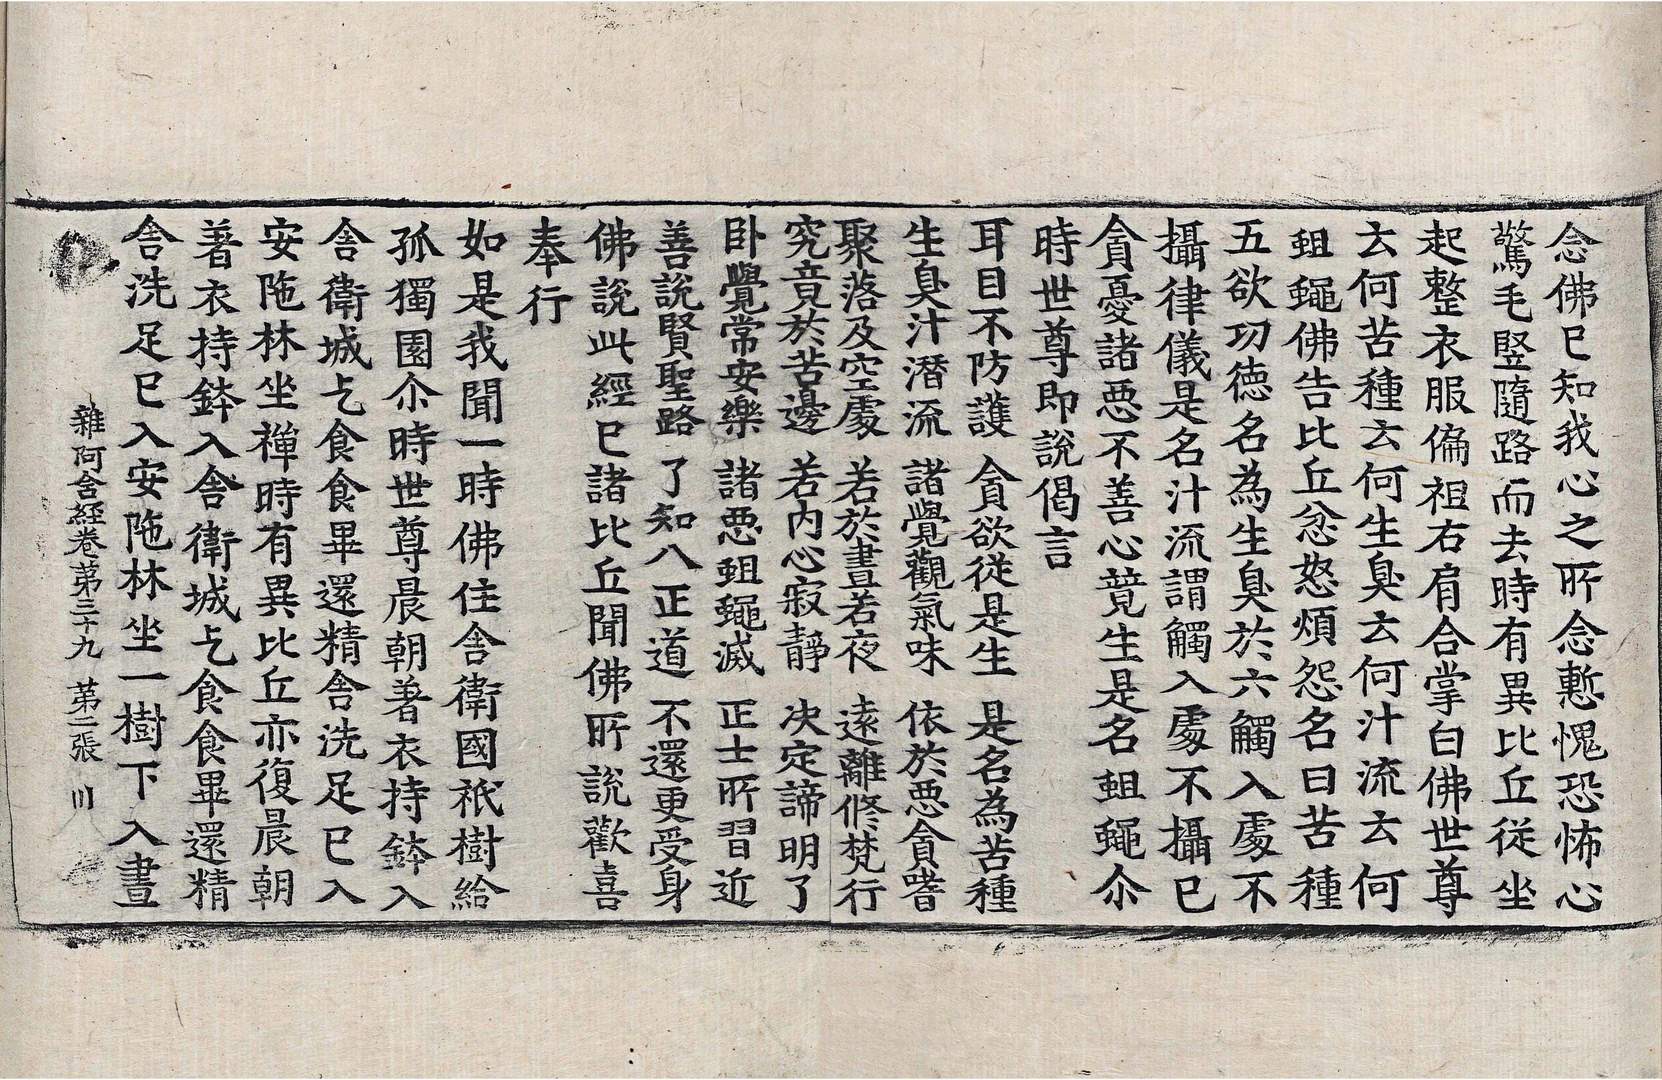 念佛已知我心之所念慙愧恐怖心
驚毛竪隨路而去時有異比丘從坐
起整衣服偏袒右肩合掌白佛世尊
云何苦種云何生臭云何汁流云何
蛆蠅佛告比丘忿怒煩怨名曰苦種
五欲功德名為生臭於六觸入處不
攝律儀是名汁流謂觸入處不攝已
貪憂諸惡不善心競生是名蛆蠅尒
時世尊即說偈言
耳目不防護 貪欲從是生 是名為苦種
生臭汁潜流 諸覺觀氣味 依於惡貪嗜
聚落及空處 若於晝若夜 遠離修梵行
究竟於苦邊 若內心寂靜 决定諦明了
卧覺常安樂 諸惡蛆蠅滅 正士所習近
善說賢聖路 了知八正道 不還更受身
佛說此經已諸比丘聞佛所說歡喜
奉行
如是我聞一時佛住舍衛國祇樹給
孤獨園尒時世尊晨朝著衣持鉢入
舍衛城乞食食畢還精舍洗足已入
安陁林坐禪時有異比丘亦復晨朝
著衣持鉢入舍衛城乞食食畢還精
舍洗足已入安陁林坐一樹下入晝
雜阿含經卷苐三十九 苐二張 川